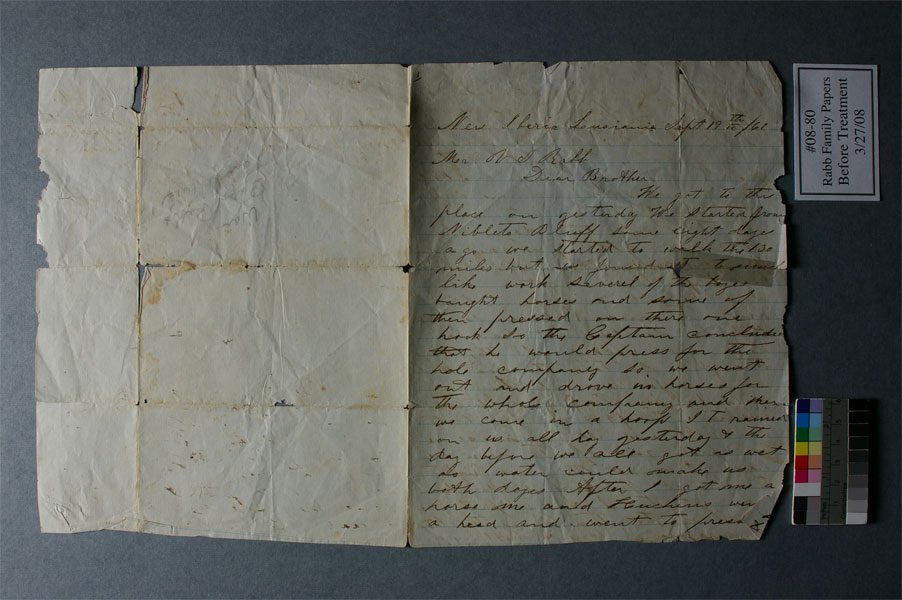 New Iberia Louisiana Sept 19th /62
Mr V S Rabb
Dear Brother
We got to this
place on yesterday We started from
Niblets Bluff some eight days
ago we started to walk the 130
miles but we found it to much
like work Saverel of the boys
baught horses and some of
then pressed on there one
hook So the Captain concluded
that he would press for the
hole company So we went
out and drove in horses for
the whole company and then
we come in a hoop It rained
on us all day yesterday & the
day before we all got as wet
as water could make us
both dayes After I got me a
horse me and Huchens wen
a head and went to press
#08-80
Rabb Family Papers
Before Treatment
3/27/08